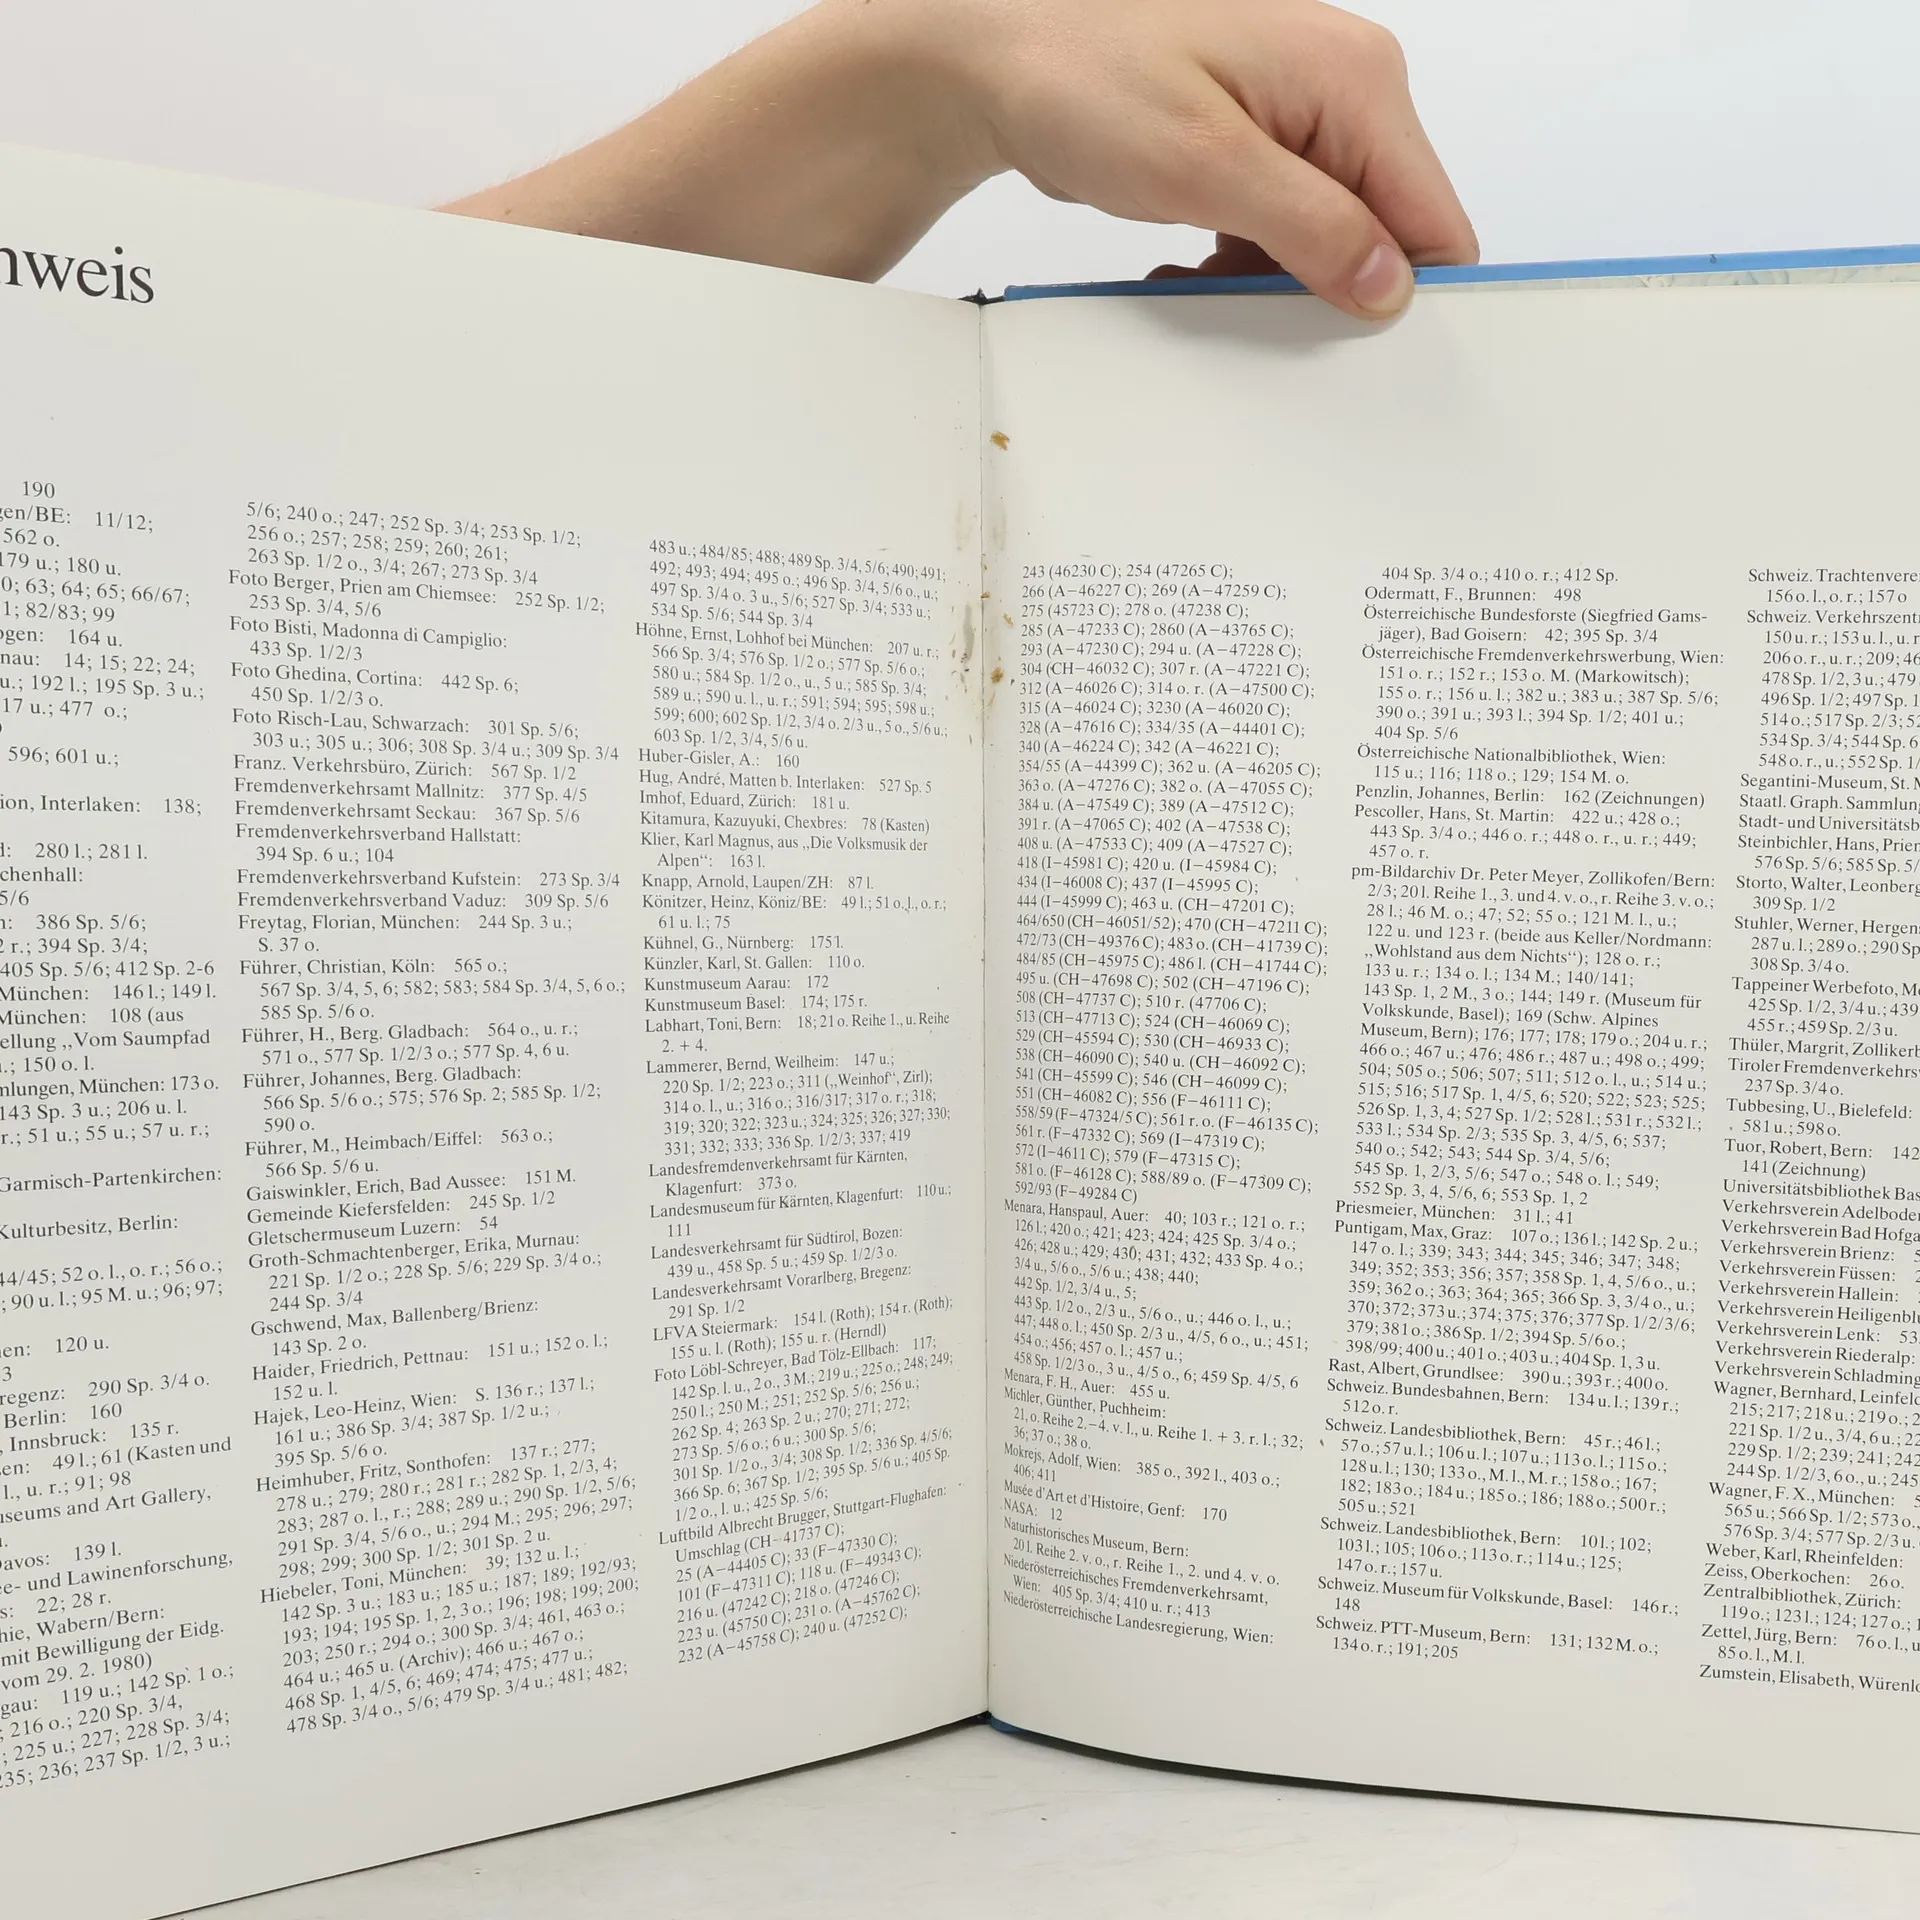 nweis
190
gen/BE: 11/12;
562 o.
179 u.; 180 u.
0; 63; 64; 65; 66/67;
1; 82/83; 99
ogen: 164 u.
nau: 14; 15; 22; 24;
u.; 192 l.; 195 Sp. 3 u.;
17 u.; 477 o.;
596; 601 u.;
ion, Interlaken: 138;
d: 280 l.; 281 l.
chenhall:
5/6
n: 386 Sp. 5/6;
2 r.; 394 Sp. 3/4;
405 Sp. 5/6; 412 Sp. 2-6
München: 146 l.; 149 l.
München: 108 (aus
ellung „Vom Saumpfad
.; 150 o. l.
mlungen, München: 173 o.
143 Sp. 3 u.; 206 u. l.
r.; 51 u.; 55 u.; 57 u. r.;
Garmisch-Partenkirchen:
Kulturbesitz, Berlin:
44/45; 52 o. l., o. r.; 56 o.;
; 90 u. l.; 95 M. u.; 96; 97;
en: 120 u.
3
regenz: 290 Sp. 3/4 o.
Berlin: 160
, Innsbruck: 135 r.
en: 49 l.; 61 (Kasten und
l., u. r.; 91; 98
useums and Art Gallery,
u.
Davos: 139 l.
ee- und Lawinenforschung,
s: 22; 28 r.
hie, Wabern/Bern:
mit Bewilligung der Eidg.
vom 29. 2. 1980)
gau: 119 u.; 142 Sp. 1 o.;
; 216 o.; 220 Sp. 3/4,
; 225 u.; 227; 228 Sp. 3/4;
235; 236; 237 Sp. 1/2, 3 u.;
5/6; 240 o.; 247; 252 Sp. 3/4; 253 Sp. 1/2;
256 o.; 257; 258; 259; 260; 261;
263 Sp. 1/2 o., 3/4; 267; 273 Sp. 3/4
Foto Berger, Prien am Chiemsee: 252 Sp. 1/2;
253 Sp. 3/4, 5/6
Foto Bisti, Madonna di Campiglio:
433 Sp. 1/2/3
Foto Ghedina, Cortina: 442 Sp. 6;
450 Sp. 1/2/3 o.
Foto Risch-Lau, Schwarzach: 301 Sp. 5/6;
303 u.; 305 u.; 306; 308 Sp. 3/4 u.; 309 Sp. 3/4
Franz. Verkehrsbüro, Zürich: 567 Sp. 1/2
Fremdenverkehrsamt Mallnitz: 377 Sp. 4/5
Fremdenverkehrsamt Seckau: 367 Sp. 5/6
Fremdenverkehrsverband Hallstatt:
394 Sp. 6 u.; 104
Fremdenverkehrsverband Kufstein: 273 Sp. 3/4
Fremdenverkehrsverband Vaduz: 309 Sp. 5/6
Freytag, Florian, München: 244 Sp. 3 u.;
S. 37 o.
Führer, Christian, Köln: 565 o.;
567 Sp. 3/4, 5, 6; 582; 583; 584 Sp. 3/4, 5, 6 o.;
585 Sp. 5/6 o.
Führer, H., Berg. Gladbach: 564 o., u. r.;
571 o., 577 Sp. 1/2/3 o.; 577 Sp. 4, 6 u.
Führer, Johannes, Berg. Gladbach:
566 Sp. 5/6 o.; 575; 576 Sp. 2; 585 Sp. 1/2;
590 o.
Führer, M., Heimbach/Eiffel: 563 o.;
566 Sp. 5/6 u.
Gaiswinkler, Erich, Bad Aussee: 151 M.
Gemeinde Kiefersfelden: 245 Sp. 1/2
Gletschermuseum Luzern: 54
Groth-Schmachtenberger, Erika, Murnau:
221 Sp. 1/2 o.; 228 Sp. 5/6; 229 Sp. 3/4 o.;
244 Sp. 3/4
Gschwend, Max, Ballenberg/Brienz:
143 Sp. 2 o.
Haider, Friedrich, Pettnau: 151 u.; 152 o. l.;
152 u. l.
Hajek, Leo-Heinz, Wien: S. 136 r.; 137 l.;
161 u.; 386 Sp. 3/4; 387 Sp. 1/2 u.;
395 Sp. 5/6 o.
Heimhuber, Fritz, Sonthofen: 137 r.; 277;
278 u.; 279; 280 r.; 281 r.; 282 Sp. 1, 2/3, 4;
283; 287 o. l., r.; 288; 289 u.; 290 Sp. 1/2, 5/6;
291 Sp. 3/4, 5/6 o., u.; 294 M.; 295; 296; 297;
298; 299; 300 Sp. 1/2; 301 Sp. 2 u.
Hiebeler, Toni, München: 39; 132 u. l.;
142 Sp. 3 u.; 183 u.; 185 u.; 187; 189; 192/93;
193; 194; 195 Sp. 1, 2, 3 o.; 196; 198; 199; 200;
203; 250 r.; 294 o.; 300 Sp. 3/4; 461, 463 o.;
464 u.; 465 u. (Archiv); 466 u.; 467 o.;
468 Sp. 1, 4/5, 6; 469; 474; 475; 477 u.;
478 Sp. 3/4 o., 5/6; 479 Sp. 3/4 u.; 481; 482;
483 u.; 484/85; 488; 489 Sp. 3/4, 5/6; 490; 491;
492; 493; 494; 495 o.; 496 Sp. 3/4, 5/6 o., u.;
497 Sp. 3/4 o. 3 u., 5/6; 527 Sp. 3/4; 533 u.;
534 Sp. 5/6; 544 Sp. 3/4
Höhne, Ernst, Lohhof bei München: 207 u. r.;
566 Sp. 3/4; 576 Sp. 1/2 o.; 577 Sp. 5/6 o.;
580 u.; 584 Sp. 1/2 o., u., 5 u.; 585 Sp. 3/4;
589 u.; 590 u. l., u. r.; 591; 594; 595; 598 u.;
599; 600; 602 Sp. 1/2, 3/4 o. 2/3 u., 5 o., 5/6 u.;
603 Sp. 1/2, 3/4, 5/6 u.
Huber-Gisler, A.: 160
Hug, André, Matten b. Interlaken: 527 Sp. 5
Imhof, Eduard, Zürich: 181 u.
Kitamura, Kazuyuki, Chexbres: 78 (Kasten)
Klier, Karl Magnus, aus „Die Volksmusik der
Alpen“: 163 l.
Knapp, Arnold, Laupen/ZH: 87 l.
Könitzer, Heinz, Köniz/BE: 49 l.; 51 o. l., o. r.;
61 u. l.; 75
Kühnel, G., Nürnberg: 175 l.
Künzler, Karl, St. Gallen: 110 o.
Kunstmuseum Aarau: 172
Kunstmuseum Basel: 174; 175 r.
Labhart, Toni, Bern: 18; 21 o. Reihe 1., u. Reihe
2. + 4.
Lammerer, Bernd, Weilheim: 147 u.;
220 Sp. 1/2; 223 o.; 311 („Weinhof“, Zirl);
314 o. l., u.; 316 o.; 316/317; 317 o. r.; 318;
319; 320; 322; 323 u.; 324; 325; 326; 327; 330;
331; 332; 333; 336 Sp. 1/2/3; 337; 419
Landesfremdenverkehrsamt für Kärnten,
Klagenfurt: 373 o.
Landesmuseum für Kärnten, Klagenfurt: 110 u.;
111
Landesverkehrsamt für Südtirol, Bozen:
439 u., 458 Sp. 5 u.; 459 Sp. 1/2/3 o.
Landesverkehrsamt Vorarlberg, Bregenz:
291 Sp. 1/2
LFVA Steiermark: 154 l. (Roth); 154 r. (Roth);
155 u. l. (Roth); 155 u. r. (Herndl)
Foto Löbl-Schreyer, Bad Tölz-Ellbach: 117;
142 Sp. l. u., 2 o., 3 M.; 219 u.; 225 o.; 248; 249;
250 l.; 250 M.; 251; 252 Sp. 5/6; 256 u.;
262 Sp. 4; 263 Sp. 2 u.; 270; 271; 272;
273 Sp. 5/6 o.; 6 u.; 300 Sp. 5/6;
301 Sp. 1/2 o., 3/4; 308 Sp. 1/2; 336 Sp. 4/5/6;
366 Sp. 6; 367 Sp. 1/2; 395 Sp. 5/6 u.; 405 Sp.
1/2 o., l. u.; 425 Sp. 5/6;
Luftbild Albrecht Brugger, Stuttgart-Flughafen:
Umschlag (CH−41737 C);
25 (A−44405 C); 33 (F−47330 C);
101 (F−47311 C); 118 u. (F−49343 C);
216 u. (47242 C); 218 o. (47246 C);
223 u. (45750 C); 231 o. (A−45762 C);
232 (A−45758 C); 240 u. (47252 C);
243 (46230 C); 254 (47265 C);
266 (A−46227 C); 269 (A−47259 C);
275 (45723 C); 278 o. (47238 C);
285 (A−47233 C); 2860 (A−43765 C);
293 (A−47230 C); 294 u. (A−47228 C);
304 (CH−46032 C); 307 r. (A−47221 C);
312 (A−46026 C); 314 o. r. (A−47500 C);
315 (A−46024 C); 3230 (A−46020 C);
328 (A−47616 C); 334/35 (A−44401 C);
340 (A−46224 C); 342 (A−46221 C);
354/55 (A−44399 C); 362 u. (A−46205 C);
363 o. (A−47276 C); 382 o. (A−47055 C);
384 u. (A−47549 C); 389 (A−47512 C);
391 r. (A−47065 C); 402 (A−47538 C);
408 u. (A−47533 C); 409 (A−47527 C);
418 (I−45981 C); 420 u. (I−45984 C);
434 (I−46008 C); 437 (I−45995 C);
444 (I−45999 C); 463 u. (CH−47201 C);
464/650 (CH−46051/52); 470 (CH−47211 C);
472/73 (CH−49376 C); 483 o. (CH−41739 C);
484/85 (CH−45975 C); 486 l. (CH−41744 C);
495 u. (CH−47698 C); 502 (CH−47196 C);
508 (CH−47737 C); 510 r. (47706 C);
513 (CH−47713 C); 524 (CH−46069 C);
529 (CH−45594 C); 530 (CH−46933 C);
538 (CH−46090 C); 540 u. (CH−46092 C);
541 (CH−45599 C); 546 (CH−46099 C);
551 (CH−46082 C); 556 (F−46111 C);
558/59 (F−47324/5 C); 561 r. o. (F−46135 C);
561 r. (F−47332 C); 569 (I−47319 C);
572 (I−4611 C); 579 (F−47315 C);
581 o. (F−46128 C); 588/89 o. (F−47309 C);
592/93 (F−49284 C)
Menara, Hanspaul, Auer: 40; 103 r.; 121 o. r.;
126 l.; 420 o.; 421; 423; 424; 425 Sp. 3/4 o.;
426; 428 u.; 429; 430; 431; 432; 433 Sp. 4 o.;
3/4 u., 5/6 o., 5/6 u.; 438; 440;
442 Sp. 1/2, 3/4 u., 5;
443 Sp. 1/2 o., 2/3 u., 5/6 o., u.; 446 o. l., u.;
447; 448 o. l.; 450 Sp. 2/3 u., 4/5, 6 o., u.; 451;
454 o.; 456; 457 o. l.; 457 u.;
458 Sp. 1/2/3 o., 3 u., 4/5 o., 6; 459 Sp. 4/5, 6
Menara, F. H., Auer: 455 u.
Michler, Günther, Puchheim:
21, o. Reihe 2.−4. v. l., u. Reihe 1. + 3. r. l.; 32;
36; 37 o.; 38 o.
Mokrejs, Adolf, Wien: 385 o., 392 l., 403 o.;
406; 411
Musée d'Art et d'Histoire, Genf: 170
NASA: 12
Naturhistorisches Museum, Bern:
20 l. Reihe 2. v. o., r. Reihe 1., 2. und 4. v. o.
Niederösterreichisches Fremdenverkehrsamt,
Wien: 405 Sp. 3/4; 410 u. r.; 413
Niederösterreichische Landesregierung, Wien:
404 Sp. 3/4 o.; 410 o. r.; 412 Sp.
Odermatt, F., Brunnen: 498
Österreichische Bundesforste (Siegfried Gams-
jäger), Bad Goisern: 42; 395 Sp. 3/4
Österreichische Fremdenverkehrswerbung, Wien:
151 o. r.; 152 r.; 153 o. M. (Markowitsch);
155 o. r.; 156 u. l.; 382 u.; 383 u.; 387 Sp. 5/6;
390 o.; 391 u.; 393 l.; 394 Sp. 1/2; 401 u.;
404 Sp. 5/6
Österreichische Nationalbibliothek, Wien:
115 u.; 116; 118 o.; 129; 154 M. o.
Penzlin, Johannes, Berlin: 162 (Zeichnungen)
Pescoller, Hans, St. Martin: 422 u.; 428 o.;
443 Sp. 3/4 o.; 446 o. r.; 448 o. r., u. r.; 449;
457 o. r.
pm-Bildarchiv Dr. Peter Meyer, Zollikofen/Bern:
2/3; 20 l. Reihe 1., 3. und 4. v. o., r. Reihe 3. v. o.;
28 l.; 46 M. o.; 47; 52; 55 o.; 121 M. l., u.;
122 u. und 123 r. (beide aus Keller/Nordmann:
„Wohlstand aus dem Nichts“); 128 o. r.;
133 u. r.; 134 o. l.; 134 M.; 140/141;
143 Sp. 1, 2 M., 3 o.; 144; 149 r. (Museum für
Volkskunde, Basel); 169 (Schw. Alpines
Museum, Bern); 176; 177; 178; 179 o.; 204 u. r.;
466 o.; 467 u.; 476; 486 r.; 487 u.; 498 o.; 499;
504; 505 o.; 506; 507; 511; 512 o. l., u.; 514 u.;
515; 516; 517 Sp. 1, 4/5, 6; 520; 522; 523; 525;
526 Sp. 1, 3, 4; 527 Sp. 1/2; 528 l.; 531 r.; 532 l.;
533 l.; 534 Sp. 2/3; 535 Sp. 3, 4/5, 6; 537;
540 o.; 542; 543; 544 Sp. 3/4, 5/6;
545 Sp. 1, 2/3, 5/6; 547 o.; 548 o. l.; 549;
552 Sp. 3, 4, 5/6, 6; 553 Sp. 1, 2
Priesmeier, München: 31 l.; 41
Puntigam, Max, Graz: 107 o.; 136 l.; 142 Sp. 2 u.;
147 o. l.; 339; 343; 344; 345; 346; 347; 348;
349; 352; 353; 356; 357; 358 Sp. 1, 4, 5/6 o., u.;
359; 362 o.; 363; 364; 365; 366 Sp. 3, 3/4 o., u.;
370; 372; 373 u.; 374; 375; 376; 377 Sp. 1/2/3/6;
379; 381 o.; 386 Sp. 1/2; 394 Sp. 5/6 o.;
398/99; 400 u.; 401 o.; 403 u.; 404 Sp. 1, 3 u.
Rast, Albert, Grundlsee: 390 u.; 393 r.; 400 o.
Schweiz. Bundesbahnen, Bern: 134 u. l.; 139 r.;
512 o. r.
Schweiz. Landesbibliothek, Bern: 45 r.; 46 l.;
57 o.; 57 u. l.; 106 u. l.; 107 u.; 113 o. l.; 115 o.;
128 u. l.; 130; 133 o., M. l., M. r.; 158 o.; 167;
182; 183 o.; 184 u.; 185 o.; 186; 188 o.; 500 r.;
505 u.; 521
Schweiz. Landesbibliothek, Bern: 101.; 102;
103 l.; 105; 106 o.; 113 o. r.; 114 u.; 125;
147 o. r.; 157 u.
Schweiz. Museum für Volkskunde, Basel: 146 r.;
148
Schweiz. PTT-Museum, Bern: 131; 132 M. o.;
134 o. r.; 191; 205
Schweiz. Trachtenverei
156 o. l., o. r.; 157 o
Schweiz. Verkehrszent
150 u. r.; 153 u. l., u. r
206 o. r., u. r.; 209; 46
478 Sp. 1/2, 3 u.; 479
496 Sp. 1/2; 497 Sp. 1
514 o.; 517 Sp. 2/3; 52
534 Sp. 3/4; 544 Sp. 6
548 o. r., u.; 552 Sp. 1/
Segantini-Museum, St. M
Staatl. Graph. Sammlung
Stadt- und Universitätsb
Steinbichler, Hans, Prien
576 Sp. 5/6; 585 Sp. 5/
Storto, Walter, Leonberg
309 Sp. 1/2
Stuhler, Werner, Hergens
287 u. l.; 289 o.; 290 Sp
308 Sp. 3/4 o.
Tappeiner Werbefoto, Me
425 Sp. 1/2, 3/4 u.; 439
455 r.; 459 Sp. 2/3 u.
Thüler, Margrit, Zollikerb
Tiroler Fremdenverkehrs
237 Sp. 3/4 o.
Tubbesing, U., Bielefeld:
581 u.; 598 o.
Tuor, Robert, Bern: 142
141 (Zeichnung)
Universitätsbibliothek Bas
Verkehrsverein Adelboden
Verkehrsverein Bad Hofga
Verkehrsverein Brienz: 5
Verkehrsverein Füssen:
Verkehrsverein Hallein:
Verkehrsverein Heiligenblu
Verkehrsverein Lenk: 53
Verkehrsverein Riederalp:
Verkehrsverein Schladming
Wagner, Bernhard, Leinfeld
215; 217; 218 u.; 219 o.; 2
221 Sp. 1/2 u., 3/4, 6 u.; 22
229 Sp. 1/2; 239; 241; 242
244 Sp. 1/2/3, 6 o., u.; 245
Wagner, F. X., München: 5
565 u.; 566 Sp. 1/2; 573 o.,
576 Sp. 3/4; 577 Sp. 2/3 u.
Weber, Karl, Rheinfelden:
Zeiss, Oberkochen: 26 o.
Zentralbibliothek, Zürich:
119 o.; 123 l.; 124; 127 o.; 1
Zettel, Jürg, Bern: 76 o. l., u
85 o. l., M. l.
Zumstein, Elisabeth, Würenlo